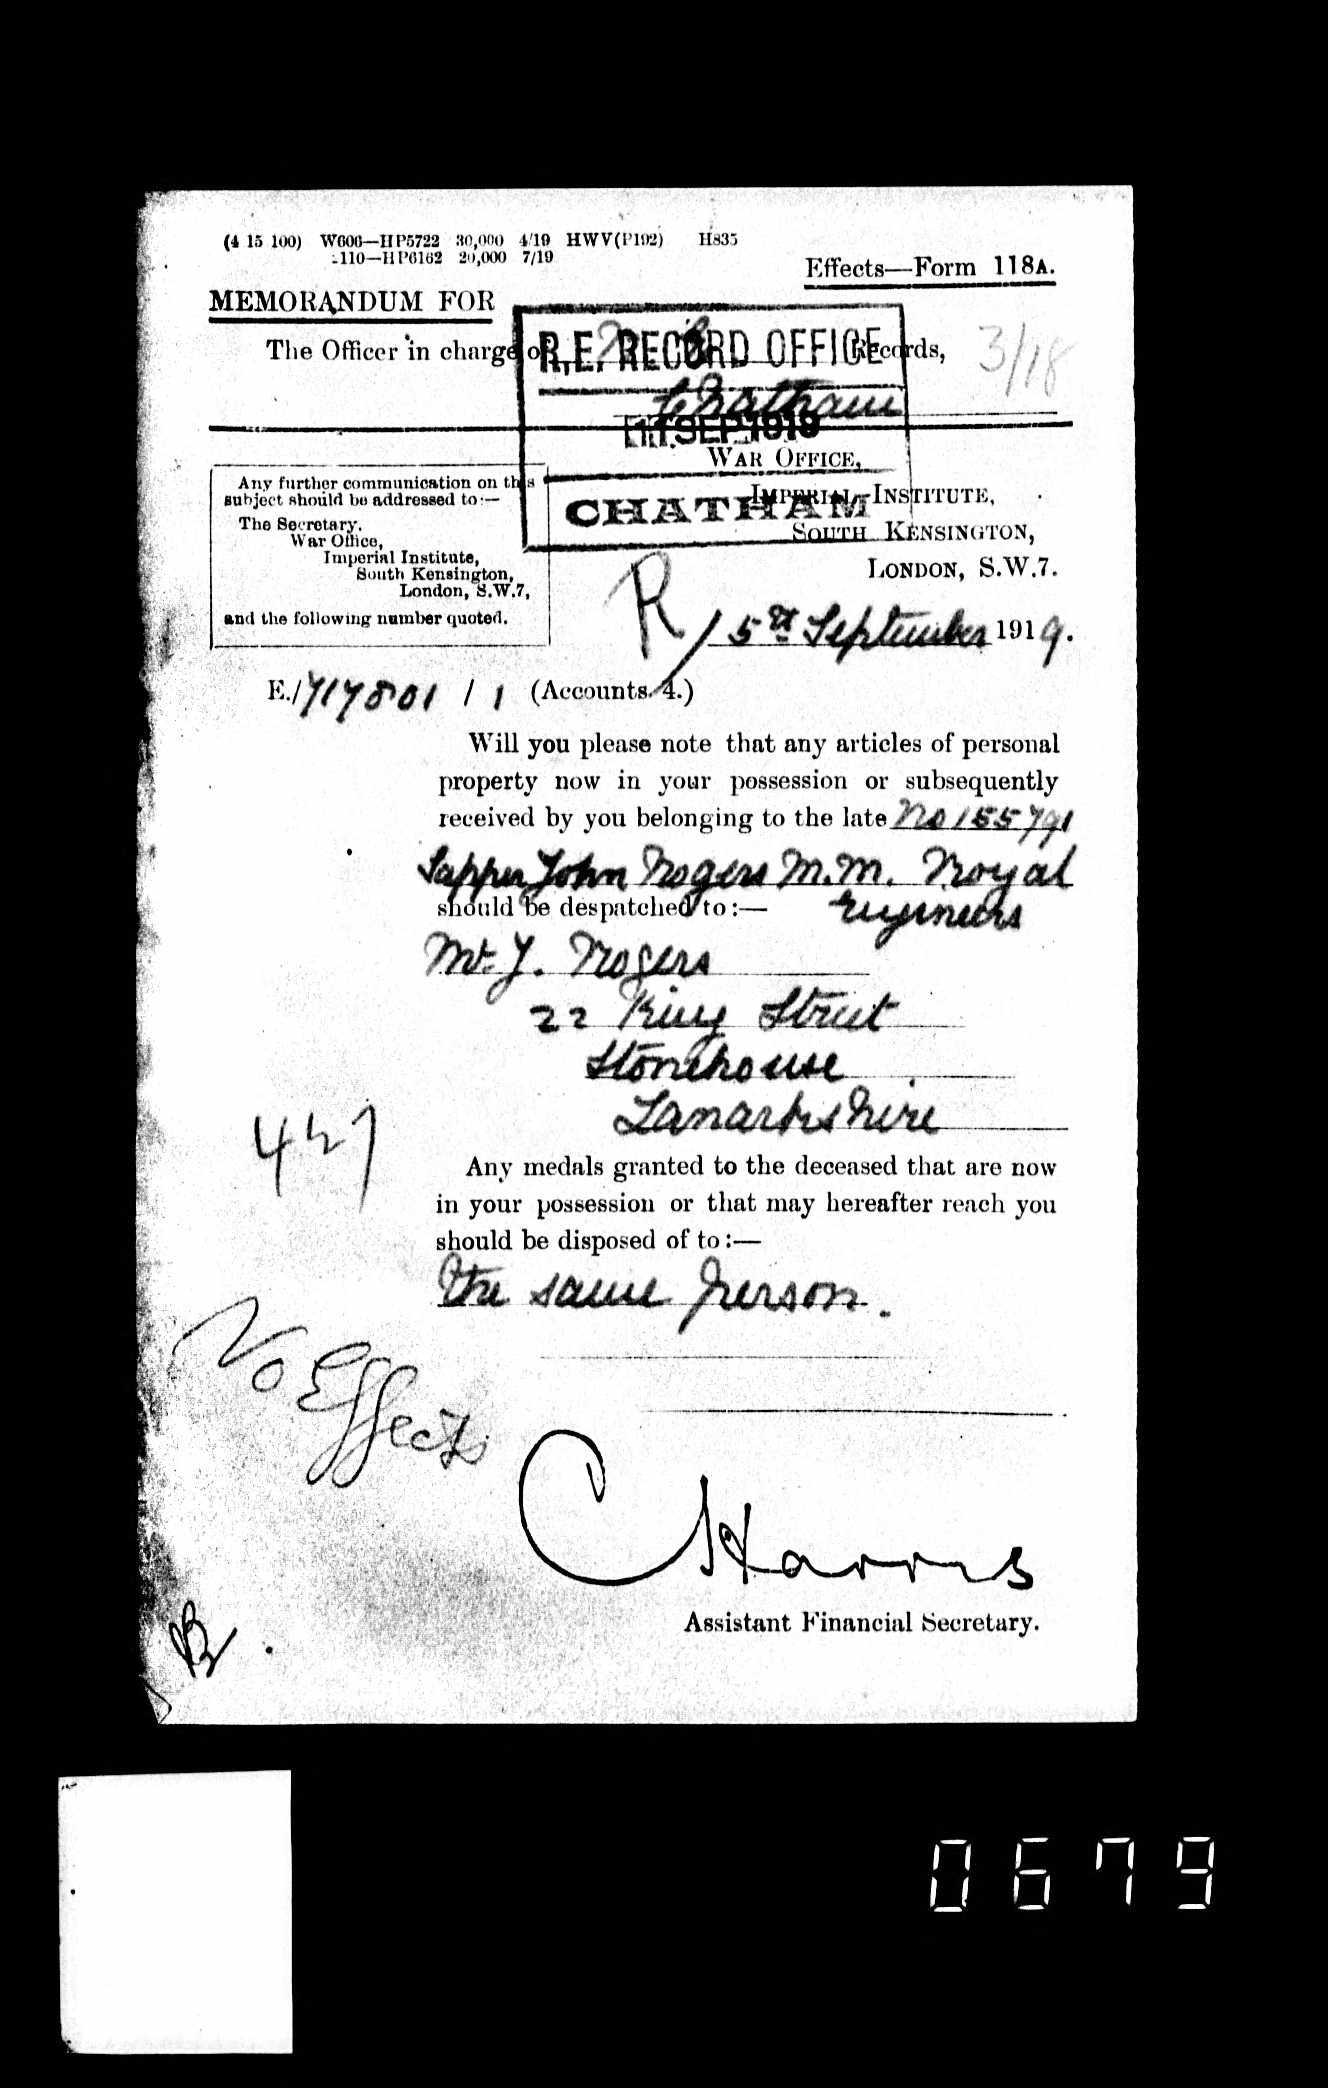 (4 15 100) W606—HP5722 30,000 4/19 HWV(P192) H835
110—HP6162 20,000 7/19
Effects—Form 118A.
MEMORANDUM FOR
The Officer in charge of R.E. Records,
3/18
Chatham
R.E. RECORD OFFICE
11 SEP 1919
CHATHAM
WAR OFFICE,
IMPERIAL INSTITUTE,
SOUTH KENSINGTON,
LONDON, S.W.7.
Any further communication on this
subject should be addressed to:—
The Secretary,
War Office,
Imperial Institute,
South Kensington,
London, S.W.7,
and the following number quoted.
R
5th September 1919.
E./717801 / 1 (Accounts 4.)
Will you please note that any articles of personal
property now in your possession or subsequently
received by you belonging to the late No 155791
Sapper John Rogers M.M. Royal
should be despatched to:— Engineers
Mr. J. Rogers
22 King Street
Stonehouse
Lanarkshire
Any medals granted to the deceased that are now
in your possession or that may hereafter reach you
should be disposed of to:—
the same person.
No Effects
C Harris
Assistant Financial Secretary.
0679